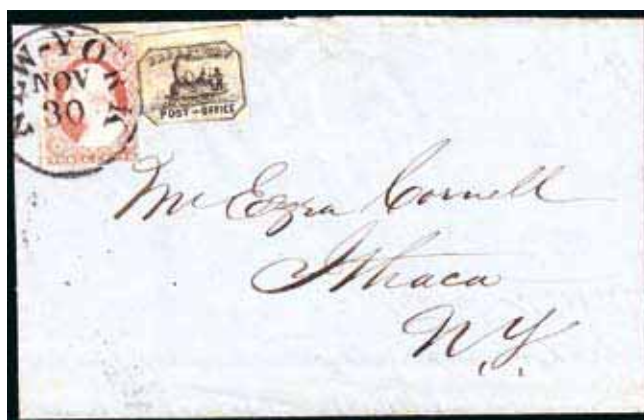 NEW-YORK
NOV
30
POST-OFFICE
Mr Ezra Cornell
Ithaca
N.Y.